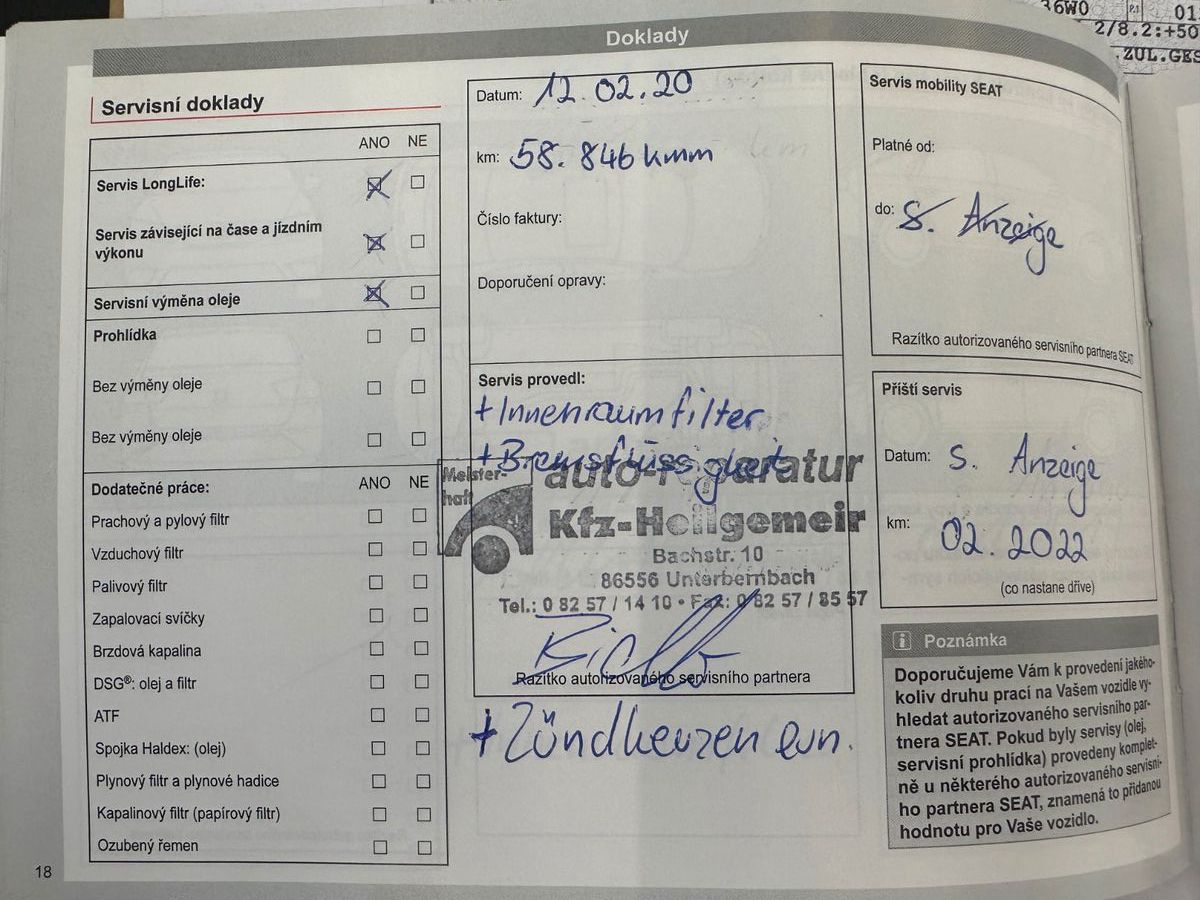 36W0 P.1 01
2/8.2:+50
.ZUL.GES
Doklady
Servisní doklady
ANO NE
Servis LongLife:
Servis závisející na čase a jízdním
výkonu
Servisní výměna oleje
Prohlídka
Bez výměny oleje
Bez výměny oleje
Dodatečné práce: ANO NE
Prachový a pylový filtr
Vzduchový filtr
Palivový filtr
Zapalovací svíčky
Brzdová kapalina
DSG®: olej a filtr
ATF
Spojka Haldex: (olej)
Plynový filtr a plynové hadice
Kapalinový filtr (papírový filtr)
Ozubený řemen
18
Datum: 12.02.20
km: 58.846 kmm
Číslo faktury:
Doporučení opravy:
Servis provedl:
+ Innenraumfilter
+ Bremsflüssigkeit
Meister-
haft
auto-reparatur
Kfz-Heilgemeir
Bachstr. 10
86556 Unterbernbach
Tel.: 0 82 57 / 14 10 • Fax: 0 82 57 / 85 57
Razítko autorizovaného servisního partnera
+ Zündkerzen ern.
Servis mobility SEAT
Platné od:
do: S. Anzeige
Razítko autorizovaného servisního partnera SEAT
Příští servis
Datum: S. Anzeige
km: 02.2022
(co nastane dříve)
i Poznámka
Doporučujeme Vám k provedení jakého-
koliv druhu prací na Vašem vozidle vy-
hledat autorizovaného servisního par-
tnera SEAT. Pokud byly servisy (olej,
servisní prohlídka) provedeny komplet-
ně u některého autorizovaného servisní-
ho partnera SEAT, znamená to přidanou
hodnotu pro Vaše vozidlo.